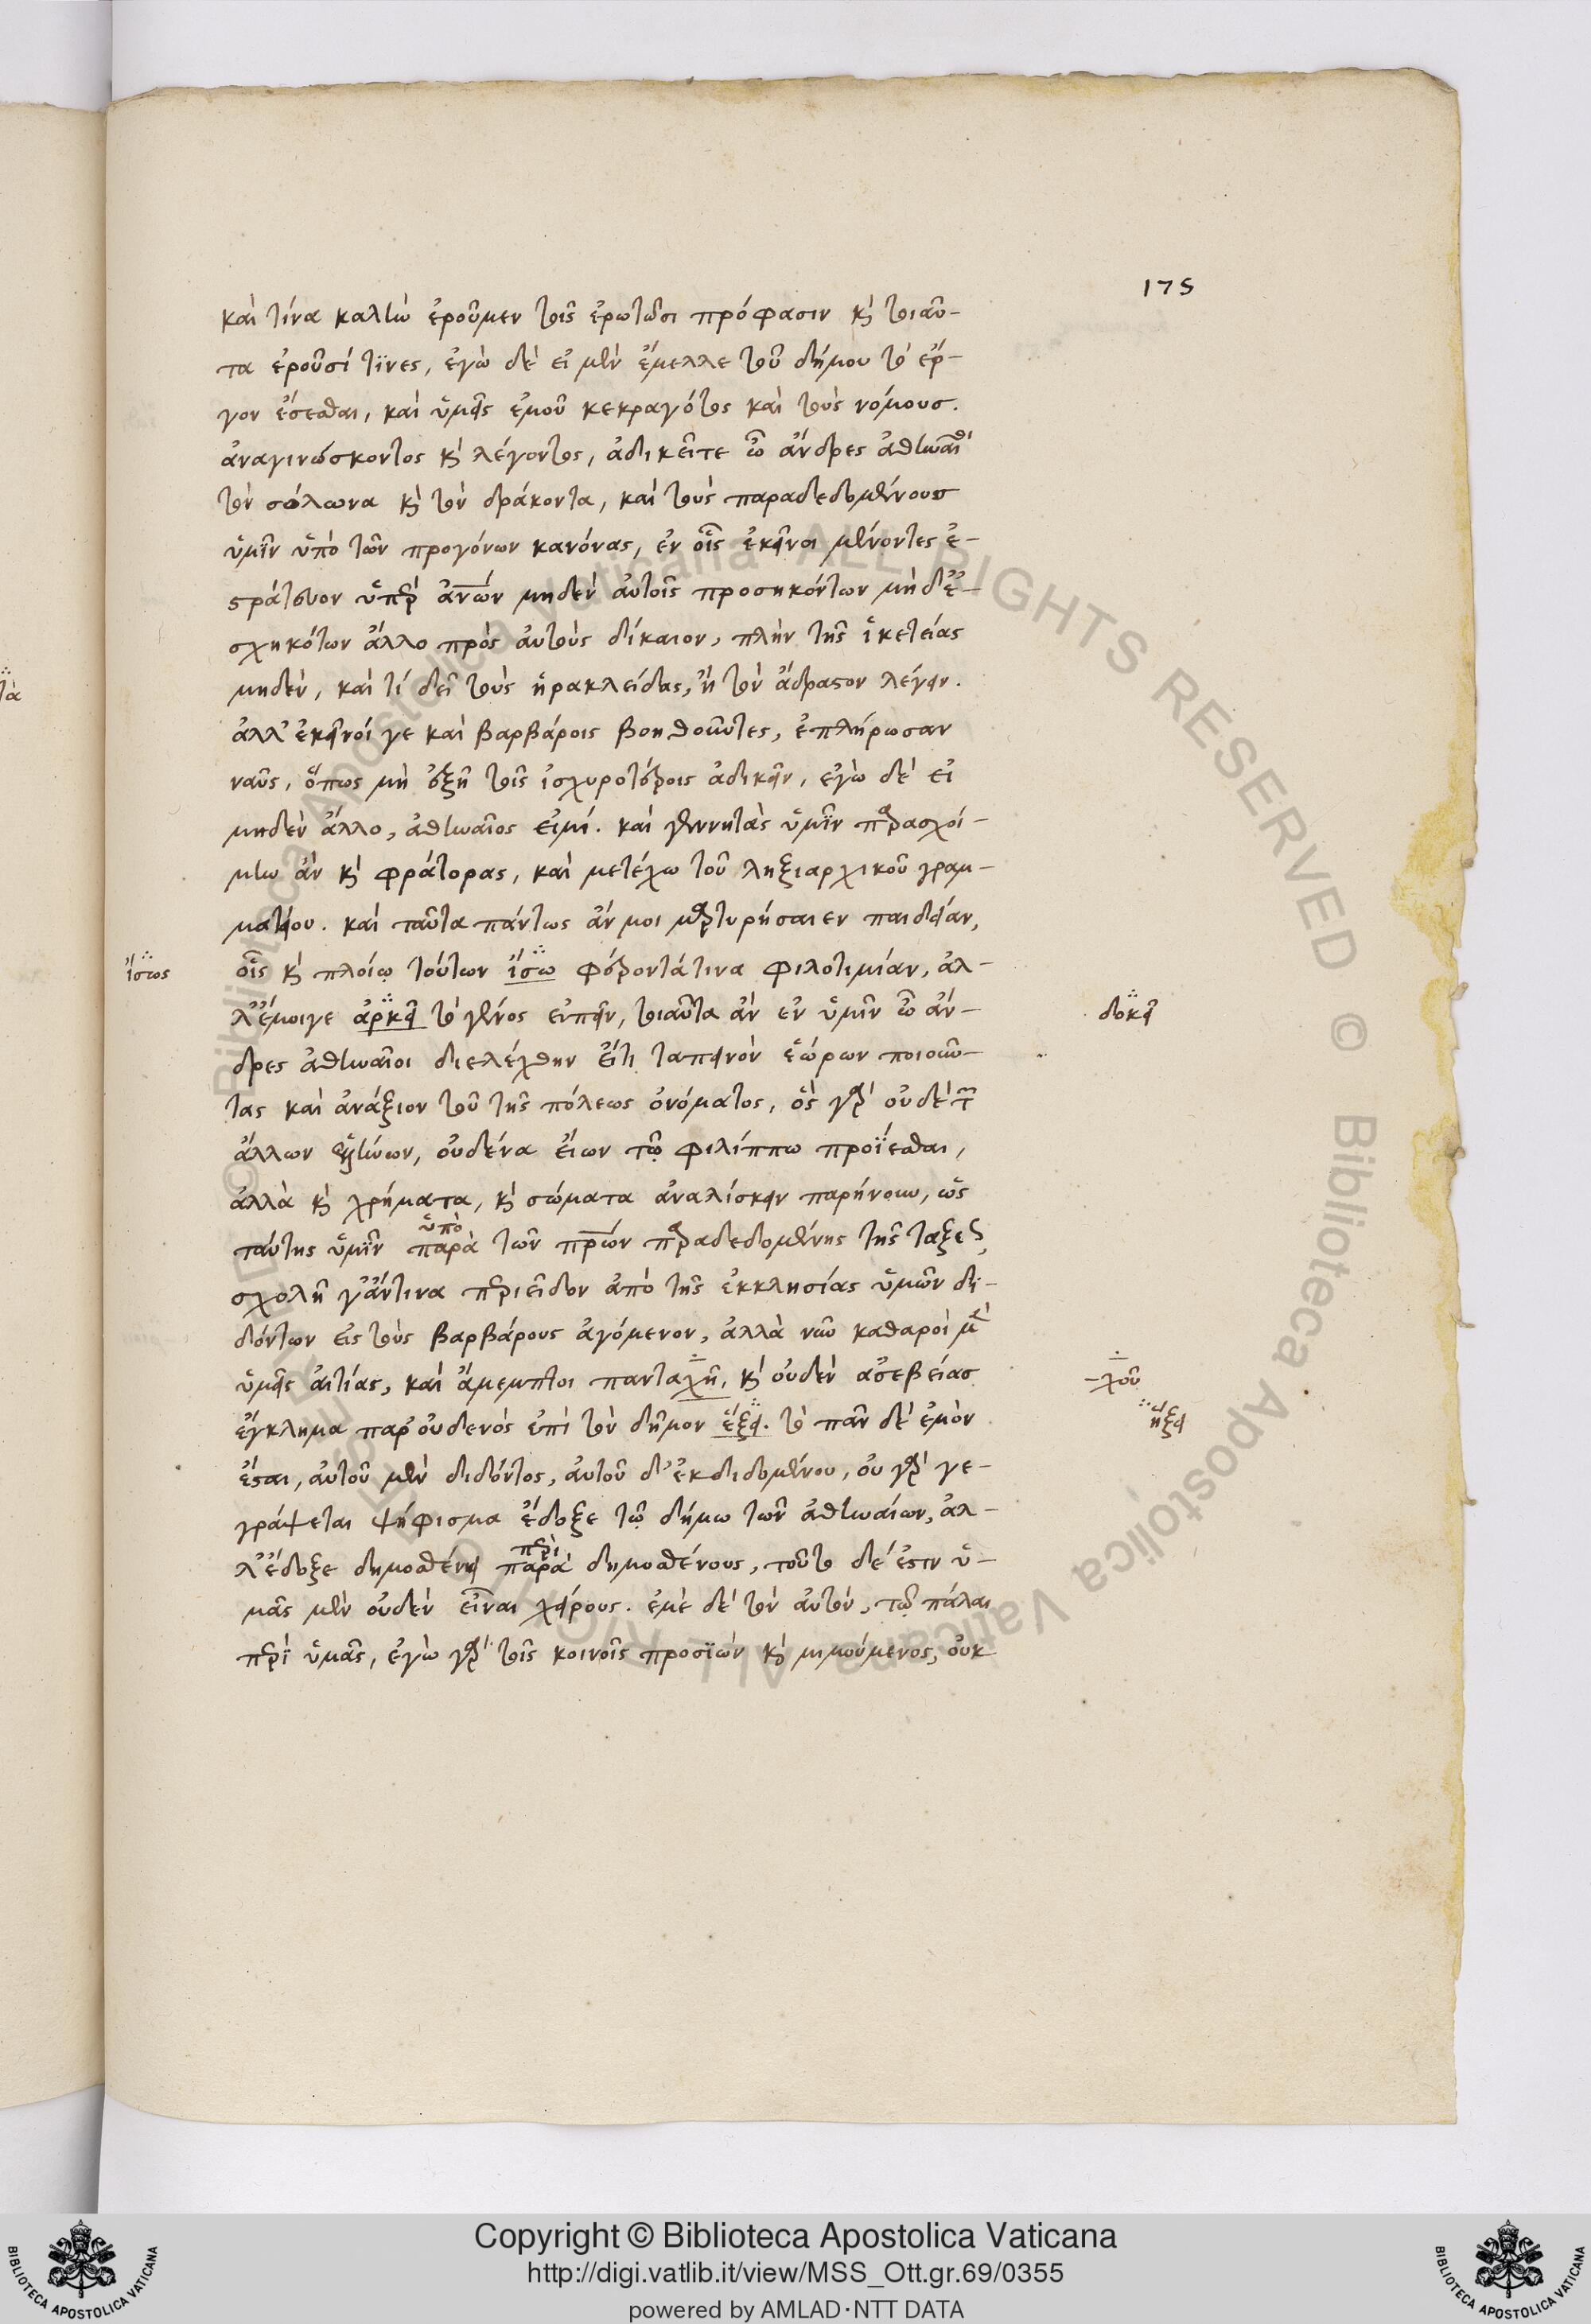 175
καὶ τίνα καλὴν ἐροῦμεν τοῖς ἐρωτῶσι πρόφασιν κὶ τοιαῦ-
τα ἐροῦσί τϊνες, ἐγὼ δὲ εἰ μὲν ἔμελλε τοῦ δήμου τὸ ἔρ-
γον ἔσεσθαι, καὶ ὑμᾶς ἐμοῦ κεκραγότος καὶ τοὺς νόμους.
ἀναγινώσκοντος κὶ λέγοντος, ἀδικεῖτε ὦ ἄνδρες ἀθηναῖοι
τὸν σόλωνα κὶ τὸν δράκοντα, καὶ τοὺς παραδεδομένους
ὑμῖν ὑπὸ τῶν προγόνων κανόνας, ἐν οἷς ἐκεῖνοι μένοντες ἐ-
στράτευον ὑπὲρ ἀνων μηδὲν αὐτοῖς προσηκόντων μὴδἐ-
σχηκότων ἄλλο πρὸς αὐτοὺς δίκαιον, πλὴν τῆς ἱκετείας
μηδὲν, καὶ τί δεῖ τοὺς ἡρακλείδας, ἢ τὸν ἄδραστον λέγειν.
ἀλλ' ἐκεῖνοί γε καὶ βαρβάροις βοηθοῦντες, ἐπλήρωσαν
ναῦς, ὅπως μὴ ἐξῇ τοῖς ἰσχυροτέροις ἀδικεῖν, ἐγὼ δὲ εἰ
μηδὲν ἄλλο, ἀθηναῖος εἰμί. καὶ γεννητὰς ὑμῖν παρασχοί-
μην ἂν κὶ φράτορας, καὶ μετέχω τοῦ ληξιαρχικοῦ γραμ-
ματείου. καὶ ταῦτα πάντως ἄν μοι μαρτυρήσαιεν παιδείαν,
ἴσως οἷς κὶ πλοίῳ τούτων ἴσω φέροντά τινα φιλοτιμίαν, ἀλ-
λ' ἔμοιγε ἀρκεῖ τὸ γένος εἰπεῖν, τοιαῦτα ἂν ἐν ὑμῖν ὦ ἄν- δοκεῖ
δρες ἀθηναῖοι διελέχθην εἴ τι ταπεινὸν ἑώρων ποιοῦν-
τας καὶ ἀνάξιον τοῦ τῆς πόλεως ὀνόματος, ὃς γὰρ οὐδὲ τῶν
ἄλλων ἑλλήνων, οὐδένα εἴων τῷ φιλίππω προΐεσθαι,
ἀλλὰ κὶ χρήματα, κὶ σώματα ἀναλίσκειν παρήνουν, ὡς
ὑπὸ
ταύτης ὑμῖν παρὰ τῶν πρων παραδεδομένης τῆς τάξεως
σχολῇ γ' ἄν τινα περιεῖδον ἀπὸ τῆς ἐκκλησίας ὑμῶν δι-
δόντων εἰς τοὺς βαρβάρους ἀγόμενον, ἀλλὰ νῦν καθαροὶ μὲν
ὑμεῖς αἰτίας, καὶ ἄμεμπτοι πανταχῆ, κὶ οὐδὲν ἀσεβείας -χοῦ
ἔγκλημα παρ' οὐδενὸς ἐπὶ τὸν δῆμον ἕξει. τὸ πᾶν δὲ ἐμὸν ἥξει
ἔσται, αὐτοῦ μὲν διδόντος, αὐτοῦ δ' ἐκδιδομένου, οὐ γὰρ γε-
γράψεται ψήφισμα ἔδοξε τῷ δήμω τῶν ἀθηναίων, ἀλ-
περὶ
λ' ἔδοξε δημοσθένει παρὰ δημοσθένους, τοῦτο δέ ἐστιν ὑ-
μᾶς μὲν οὐδὲν εἶναι χείρους. ἐμὲ δὲ τὸν αὐτὸν, τῷ πάλαι
περὶ ὑμᾶς, ἐγὼ γὰρ τοῖς κοινοῖς προσϊὼν κὶ μιμούμενος, οὐκ
Copyright © Biblioteca Apostolica Vaticana
http://digi.vatlib.it/view/MSS_Ott.gr.69/0355
powered by AMLAD·NTT DATA